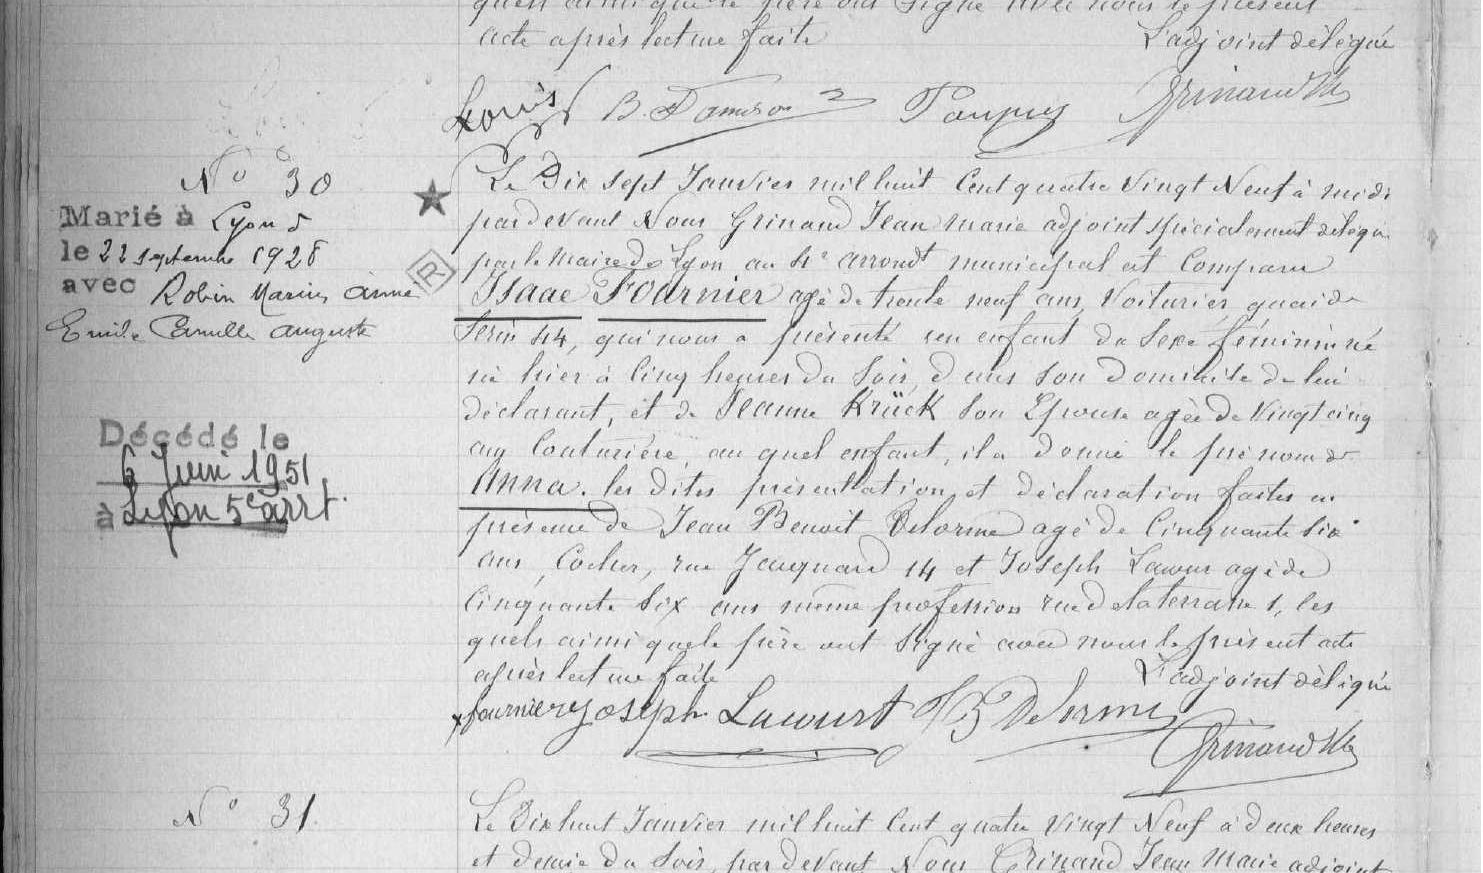 acte après lecture faite
L'adjoint délégué
Louis B. Grinand
N° 30
Marié à Lyon 5
le 22 septembre 1928
avec Robin Marius Aimé
Emile Camille Auguste
Décédé le
6 Juin 1951
à Lyon 5e arrt.
Le Dix sept Janvier mil huit Cent quatre Vingt Neuf à midi
pardevant Nous Grinand Jean marie adjoint spécialement délégué
par le Maire de Lyon au 4e arrondt municipal est Comparu
Isaac Fournier agé de trente neuf ans, Voiturier, quai de
Serin 44, qui nous a présenté un enfant du Sexe féminin né
né hier à Cinq heures du Soir, dans Son Domicile de lui
déclarant, et de Jeanne Krück Son Epouse agée de Vingt cinq
ans Couturière, au quel enfant, il a donné le prénom de
Anna. les dites présentation et déclaration faites en
présence de Jean Benoit Delorme agé de Cinquante Six
ans, Cocher, rue Jacquard 14 et Joseph Lacour agé de
Cinquante Six ans même profession rue de la terrasse 1, les
quels ainsi que le père ont Signé avec nous le présent acte
après lecture faite
L'adjoint délégué
fournier Joseph Lacourt JB Delorme
Grinand
N° 31
Le Dix huit Janvier mil huit Cent quatre Vingt Neuf à deux heures
et demie du Soir, par devant Nous Grinand Jean Marie adjoint